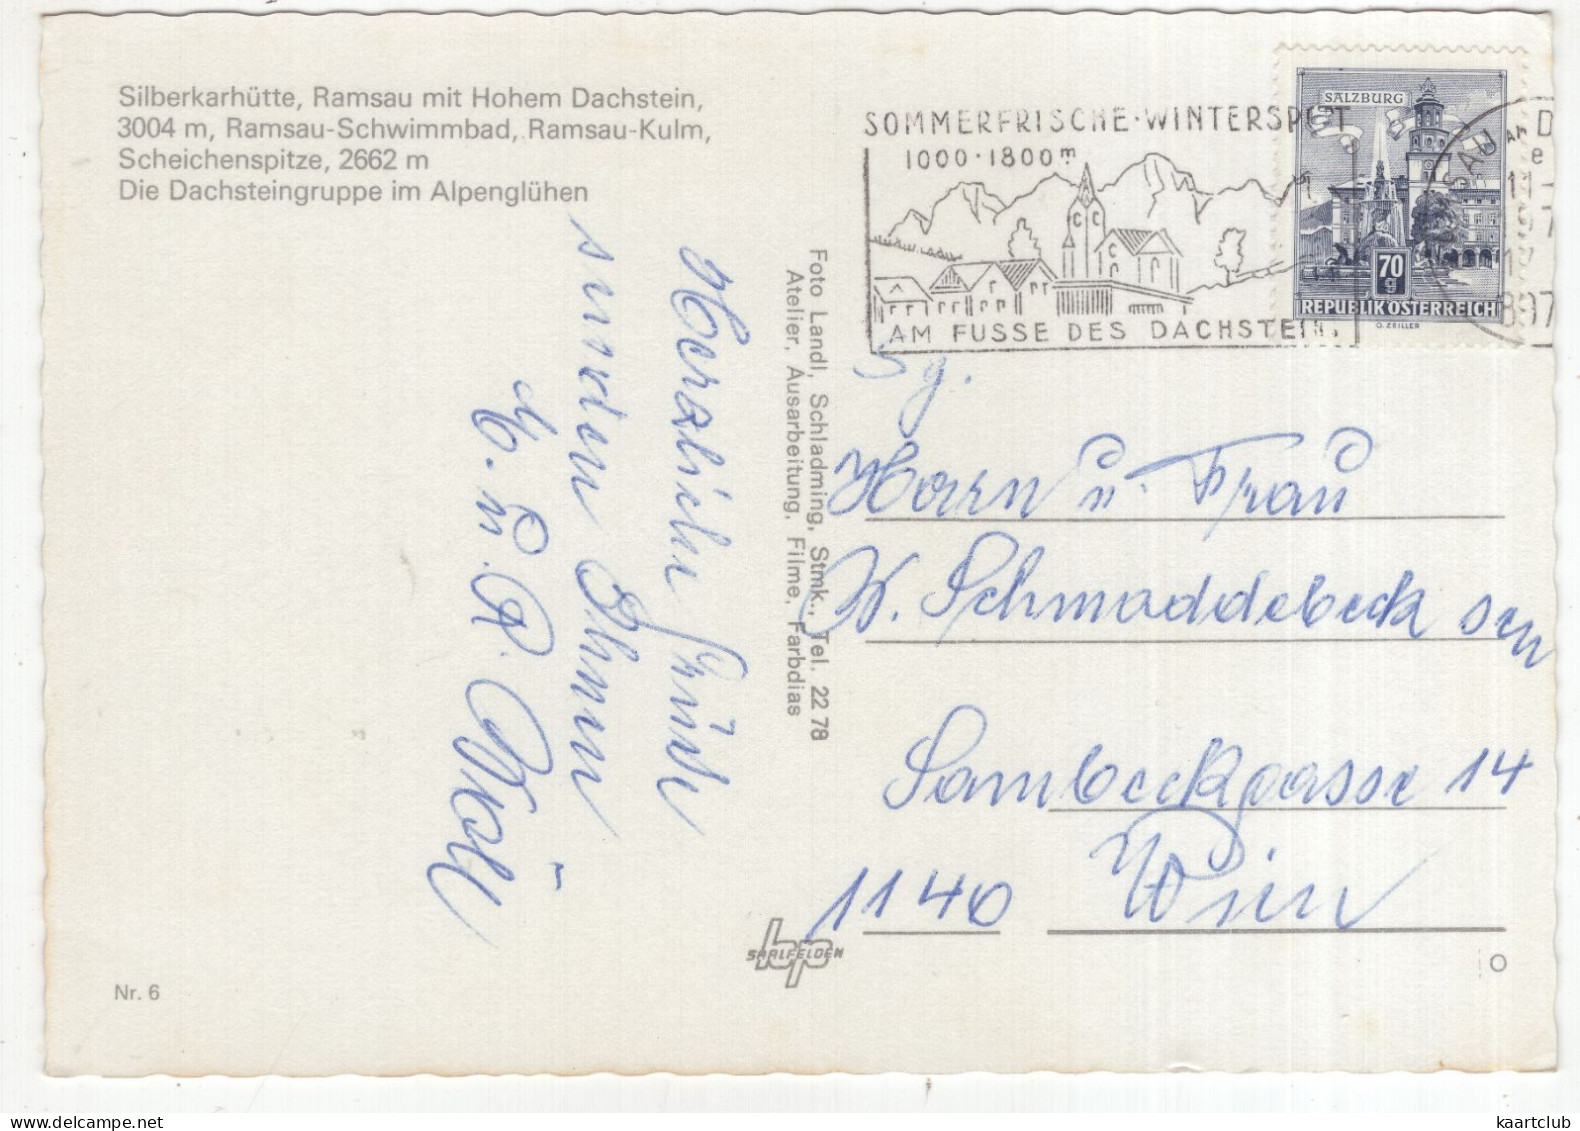 Silberkarhütte, Ramsau mit Hohem Dachstein,
3004 m, Ramsau-Schwimmbad, Ramsau-Kulm,
Scheichenspitze, 2662 m
Die Dachsteingruppe im Alpenglühen
SOMMERFRISCHE·WINTERSPORT
1000·1800m
AM FUSSE DES DACHSTEINS
SALZBURG
70
g
REPUBLIK ÖSTERREICH
G. ZEILLER
Herzliche Grüße
senden Ihnen
Foto Landl, Schladming, Stmk., Tel. 22 78
Atelier, Ausarbeitung, Filme, Farbdias
Sg.
Herrn u. Frau
W. Schmaddebeck sen
Sambeckgasse 14
1140 Wien
hp
SAALFELDEN
Nr. 6
O
kaartclub